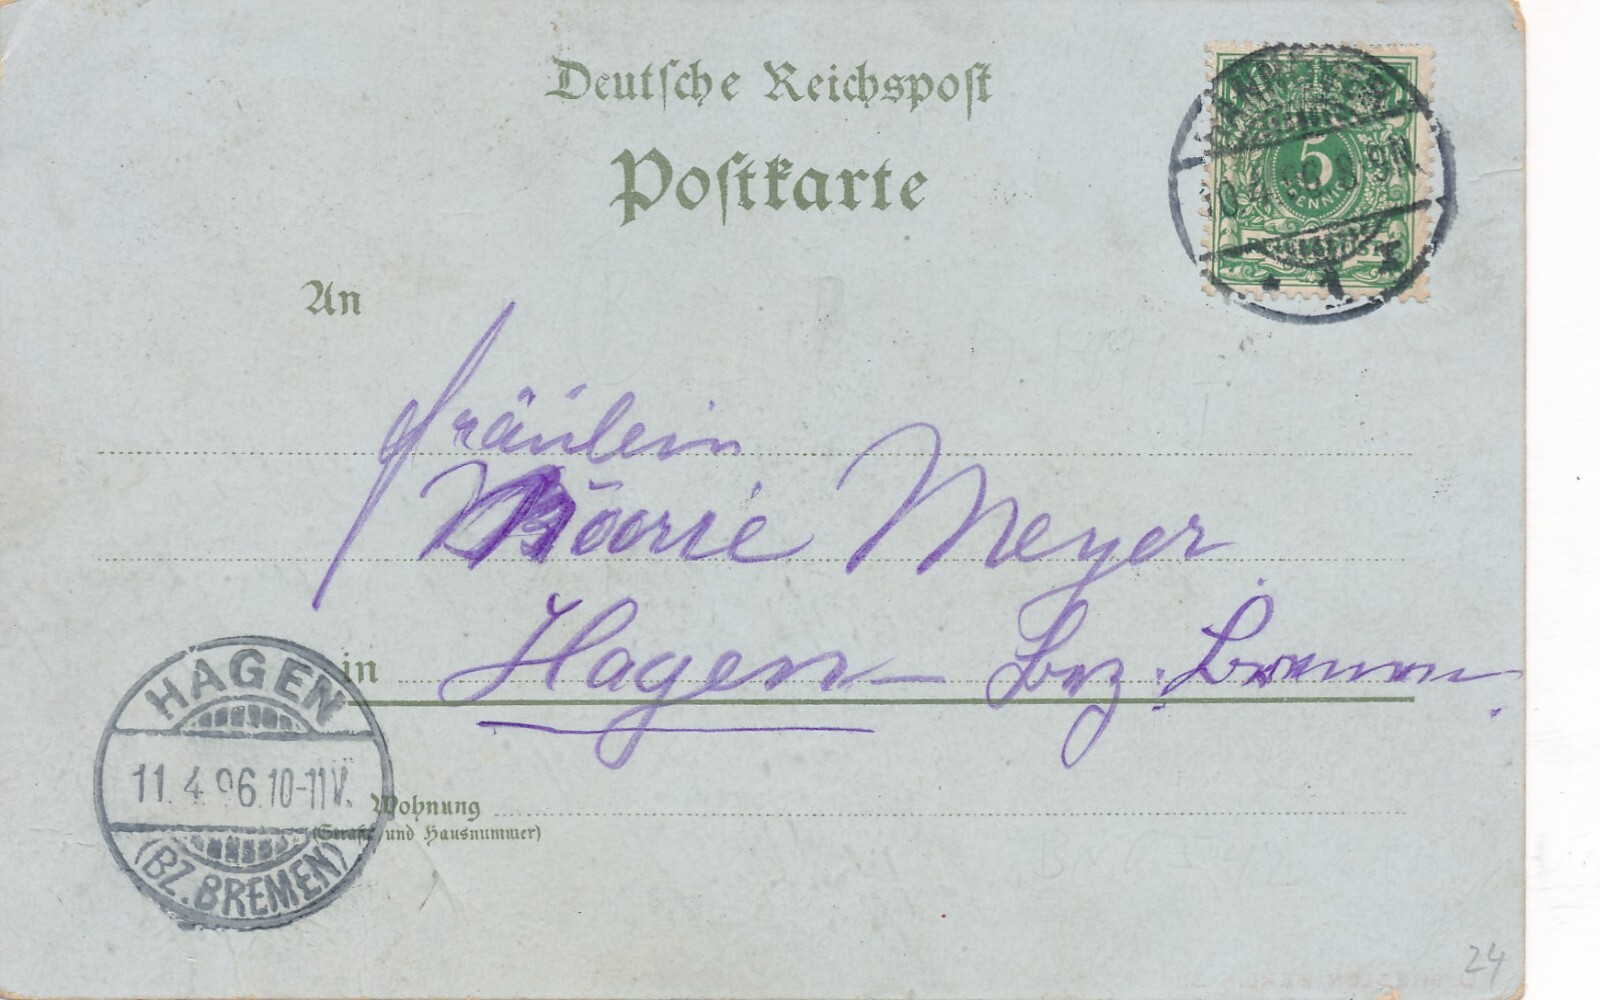 Deutsche Reichspost
Postkarte
5
PFENNIG
REICHSPOST
An
Fräulein
Marie Meyer
in Hagen Bez. Bremen.
HAGEN
11.4.96.10-11V.
(BZ. BREMEN)
Wohnung
(Straße und Hausnummer)
24